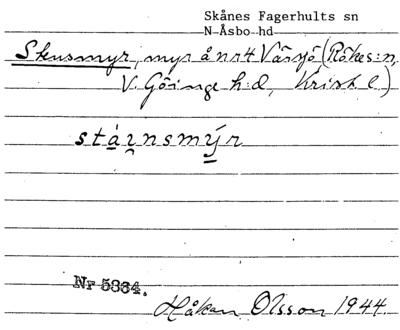 Skånes Fagerhults sn
N Åsbo hd
Stensmyr, myr å nr 4 Värsjö (Rökes:n,
V. Göinge h:d, Krist. l)
stá̱i̯nsmý̱r
Nr 5334.
Håkan Olsson 1944.